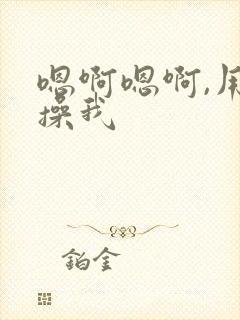 嗯啊嗯啊,用
操我
铂金